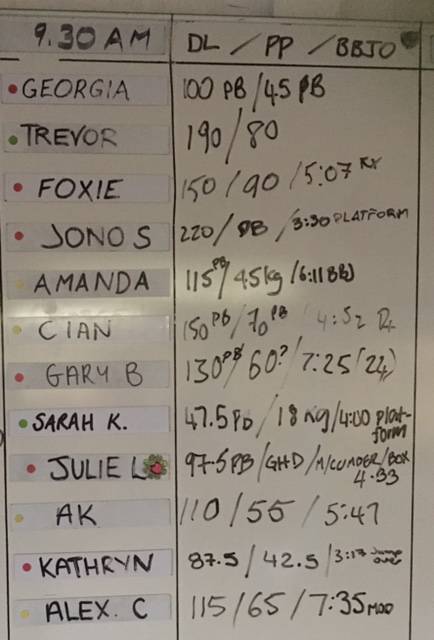 9.30 AM DL / PP / BBJO
GEORGIA 100 PB / 45 PB
TREVOR 190 / 80
FOXIE 150 / 90 / 5:07 RX
JONO S 220 / PB / 3:30 PLATFORM
AMANDA 115 PB / 45kg / 6:11
CIAN 150 PB / 70 PB / 4:52
GARY B 130 PB / 60? / 7:25 (24)
SARAH K. 47.5 / 18 kg / 4:00 Plat-
form
JULIE L 97.5 PB / GHD / /BOX
4.33
AK 110 / 55 / 5:47
KATHRYN 87.5 / 42.5 / 3:17 Jump
over
ALEX. C 115 / 65 / 7:35 MOD